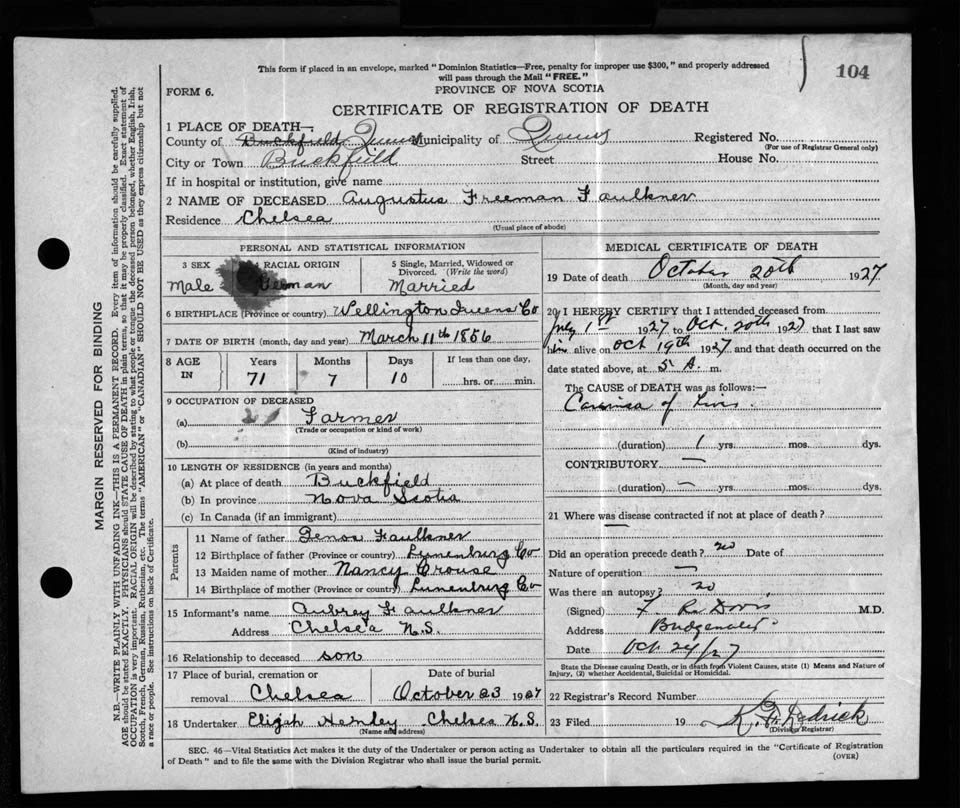 This form if placed in an envelope, marked "Dominion Statistics—Free, penalty for improper use $300," and properly addressed
will pass through the Mail "FREE."
104
FORM 6.
PROVINCE OF NOVA SCOTIA
CERTIFICATE OF REGISTRATION OF DEATH
1 PLACE OF DEATH—
County of Buckfield Queens Municipality of Queens Registered No.
(For use of Registrar General only)
City or Town Buckfield Street House No.
If in hospital or institution, give name
2 NAME OF DECEASED Augustus Freeman Faulkner
Residence Chelsea
(Usual place of abode)
PERSONAL AND STATISTICAL INFORMATION
3 SEX
Male
4 RACIAL ORIGIN
German
5 Single, Married, Widowed or
Divorced. (Write the word)
Married
6 BIRTHPLACE (Province or country) Wellington Queens Co
7 DATE OF BIRTH (month, day and year) March 11th 1856
8 AGE IN
Years Months Days If less than one day,
71 7 10 hrs. or min.
9 OCCUPATION OF DECEASED
(a) Farmer
(Trade or occupation or kind of work)
(b)
(Kind of industry)
10 LENGTH OF RESIDENCE (in years and months)
(a) At place of death Buckfield
(b) In province Nova Scotia
(c) In Canada (if an immigrant)
Parents
11 Name of father Faulkner
12 Birthplace of father (Province or country) Lunenburg Co
13 Maiden name of mother Nancy Crouse
14 Birthplace of mother (Province or country) Lunenburg Co
15 Informant's name Aubrey Faulkner
Address Chelsea N.S.
16 Relationship to deceased son
17 Place of burial, cremation or Date of burial
removal Chelsea October 23 1927
18 Undertaker Elijah Hemley Chelsea N.S.
(Name and address)
MEDICAL CERTIFICATE OF DEATH
19 Date of death October 20th 1927
(Month, day and year)
20 I HEREBY CERTIFY that I attended deceased from
July 1st 1927 to Oct. 20th 1927 that I last saw
him alive on Oct 19th 1927 and that death occurred on the
date stated above, at 5 A. m.
The CAUSE of DEATH was as follows:—
of
(duration) 1 yrs. mos. dys.
CONTRIBUTORY —
(duration) — yrs. mos. dys.
21 Where was disease contracted if not at place of death?
—
Did an operation precede death? no Date of
Nature of operation —
Was there an autopsy? no
(Signed) F. R. Davis M.D.
Address Bridgewater
Date Oct 24/27
State the Disease causing Death, or in death from Violent Causes, state (1) Means and Nature of
Injury, (2) whether Accidental, Suicidal or Homicidal.
22 Registrar's Record Number
23 Filed 19
(Division Registrar)
SEC. 46—Vital Statistics Act makes it the duty of the Undertaker or person acting as Undertaker to obtain all the particulars required in the "Certificate of Registration
of Death" and to file the same with the Division Registrar who shall issue the burial permit.
(OVER)
MARGIN RESERVED FOR BINDING
N.B.—WRITE PLAINLY WITH UNFADING INK—THIS IS A PERMANENT RECORD. Every item of information should be carefully supplied.
AGE should be stated EXACTLY. PHYSICIANS should STATE CAUSE OF DEATH in plain terms, so that it may be properly classified. Exact statement of
OCCUPATION is very important. RACIAL ORIGIN will be described by stating to what people or tongue the deceased person belonged, whether English, Irish,
Scotch, French, German, Russian, Ruthenian, etc. The terms "AMERICAN" or "CANADIAN" SHOULD NOT BE USED as they express citizenship but not
a race or people. See instructions on back of Certificate.